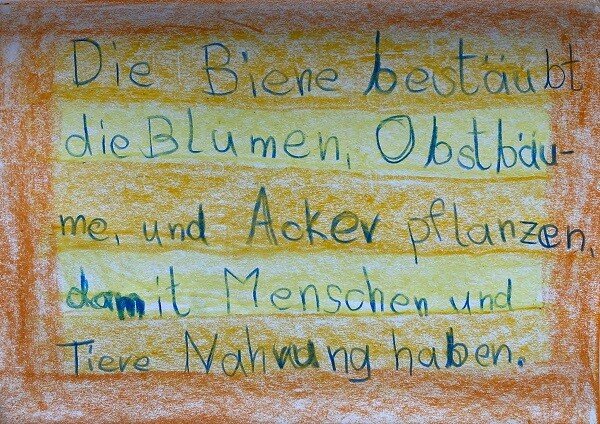 Die Biene bestäubt
die Blumen, Obstbäu-
me, und Acker pflanzen,
damit Menschen und
Tiere Nahrung haben.